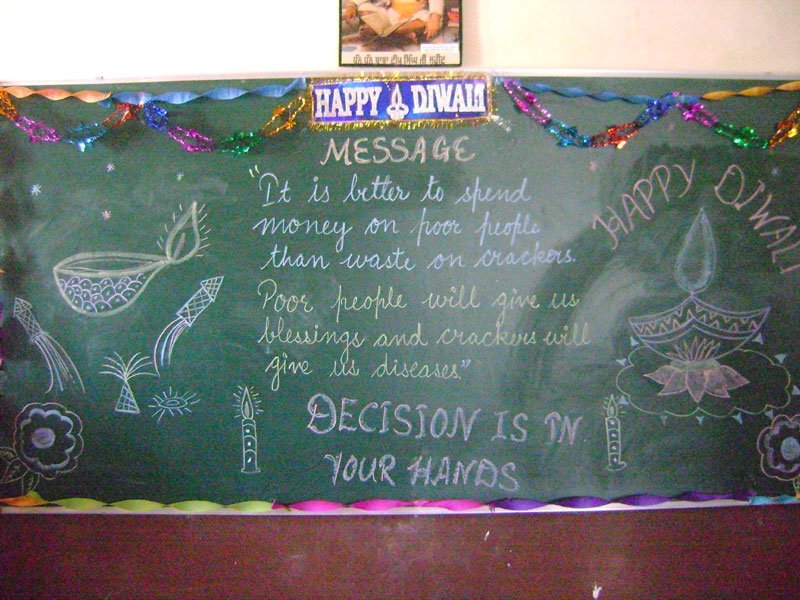 ਧੰਨ ਧੰਨ ਬਾਬਾ ਦੀਪ ਸਿੰਘ ਜੀ ਸ਼ਹੀਦ
HAPPY DIWALI
MESSAGE
"It is better to spend
money on poor people
than waste on crackers.
Poor people will give us
blessings and crackers will
give us diseases."
DECISION IS IN
YOUR HANDS
HAPPY DIWALI